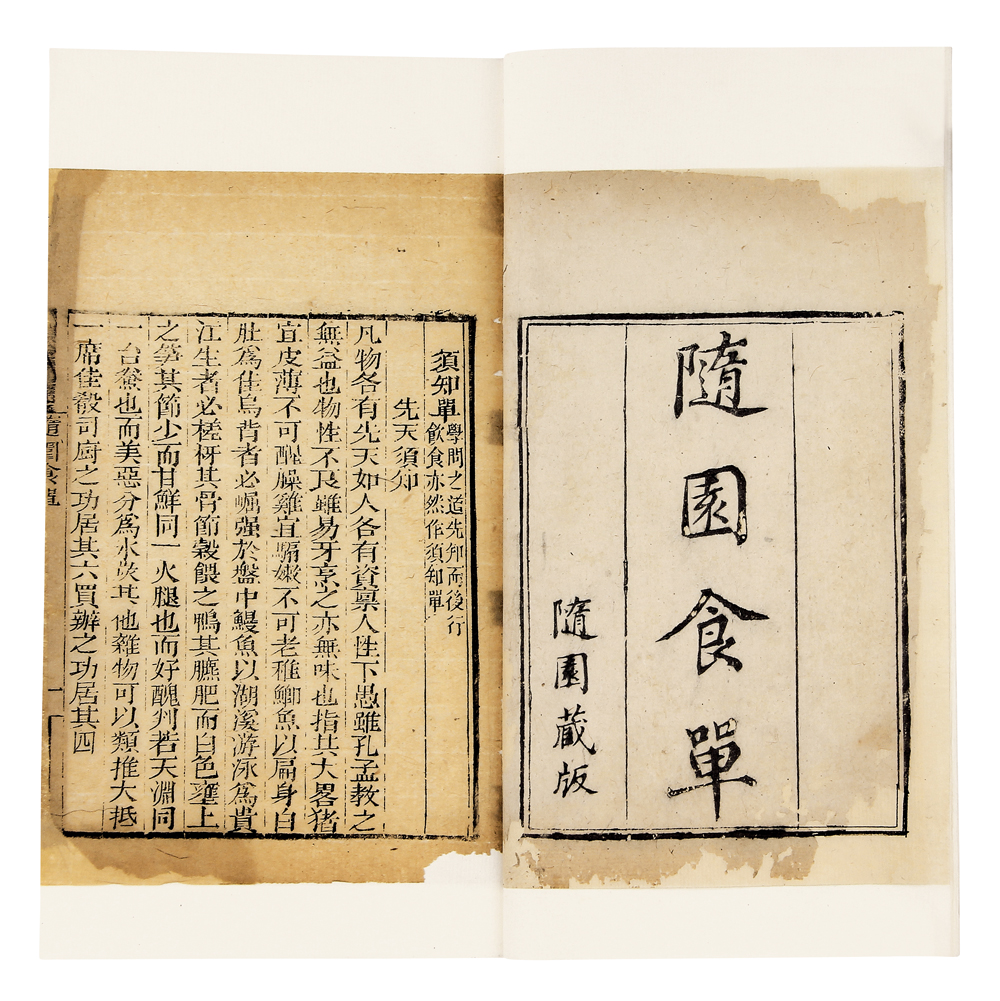 隨園食單
隨園藏版
須知單
學問之道先知而後行
飲食亦然作須知單
先天須知
凡物各有先天如人各有資稟人性下愚雖孔孟教之
無益也物性不良雖易牙烹之亦無味也指其大畧猪
宜皮薄不可腥臊雞宜騸嫩不可老稚鯽魚以扁身白
肚爲佳烏背者必崛强於盤中鰻魚以湖溪游泳爲貴
江生者必槎枒其骨節穀餵之鴨其膘肥而白色壅土
之筍其節少而甘鮮同一火腿也而好醜判若天淵同
一台鯗也而美惡分爲氷炭其他雜物可以類推大抵
一席佳殽司廚之功居其六買辦之功居其四
隨園食單
一